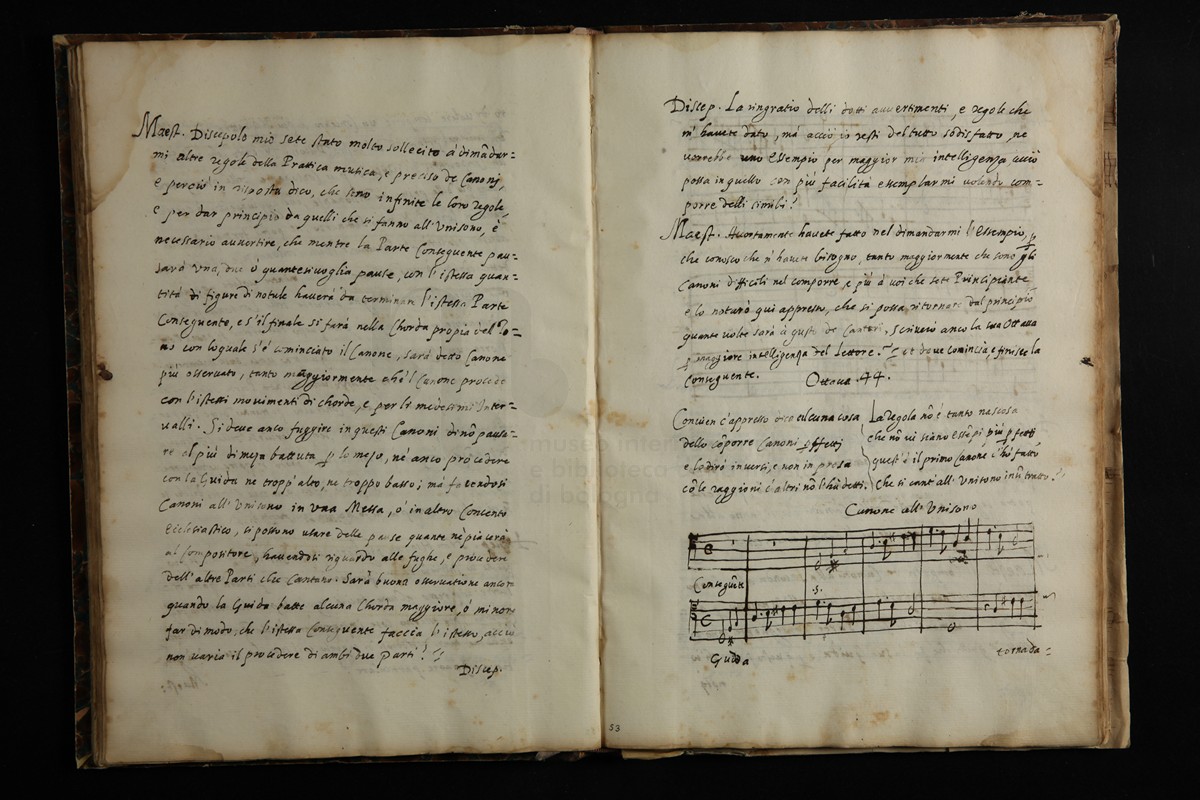 Maest. Discepolo mio sete stato molto sollecito à dimãdar=
mi altre regole della Prattica musica, e preciso de Canonj,
e perciò in risposta dico, che sono infinite le loro regole,
e per dar principio da quelli che si fanno all'Unisono, è
necessario auuertire, che mentre la Parte Conseguente pau=
sarà vna, due ò quantesiuoglia pause, con l'istessa quan=
tità di figure di notule hauerà da terminare l'istessa Parte
Conseguente, e s'il finale si farà nella Chorda propia del To=
no con loquale s'è cominciato il Canone, sarà detto Canone
più osseruato, tanto maggiormente ché'l Canone procede
con l'istessi mouimenti di chorde, e per li medesimi Inter=
ualli. Si deue anco fuggire in questi Canoni di nõ pausa=
re al più di meza battuta p lo meno, né anco procedere
con la Guida ne tropp'alto, ne troppo basso; mà facendosi
Canoni all'Unisono in vna Messa, ò in altro Concento
Ecclesiastico, si possono usare delle pause quante ne piacerà
al compositore, hauendosi riguardo alle fughe, e procedere
dell'altre Parti che Cantano. Sarà buona osseruatione ancora
quando la Guida batte alcuna Chorda maggiore, ò minore
far di modo, che l'istessa Conseguente faccia l'istesso, acciò
non uaria il procedere di ambi due Parti.
Discep.
Discep. La ringratio delli dotti auuertimenti, e regole che
n'hauete dato, mà acciò io resti del tutto sodisfatto, ne
uorrebbe uno essempio per maggior mia intelligenza acciò
possa in quello con più facilità essemplarmi uolendo com=
porre delli simili?
Maest. Accortamente hauete fatto nel dimandarmi l'Essempio, p
che conosco che n'hauete bisogno, tanto maggiormente che sono gli
Canoni difficili nel comporre, e più à voi che sete Principiante
e lo noterò qui appresso, che si possa ritornare dal principio
quante uolte sarà à gusto de Cantori, scriuerò anco la sua Ottaua
p maggiore intelligenza del Lettore. et doue comincia, e finisce la
Conseguente. Ottaua 44.
Conuien c'appresso dico alcuna cosa
dello cõporre Canoni pffetti
e lo dirò in uersi, e non in prosa
cõ le raggioni c'altri nõ l'hà detti.
La regola nõ è tanto nascosa
che nõ ui siano essẽpi più pfetti
quest'è il primo Canone c'hò fatto
che si cant'all'Unisono in tratto.
Canone all'Unisono
Conseguẽte
.s.
Guida
tornada=
53
museo inter
e biblioteca
di bologna